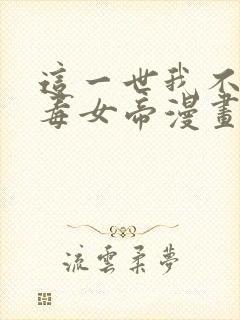 這一世我不
毒女帝漫畫
流雲柔夢